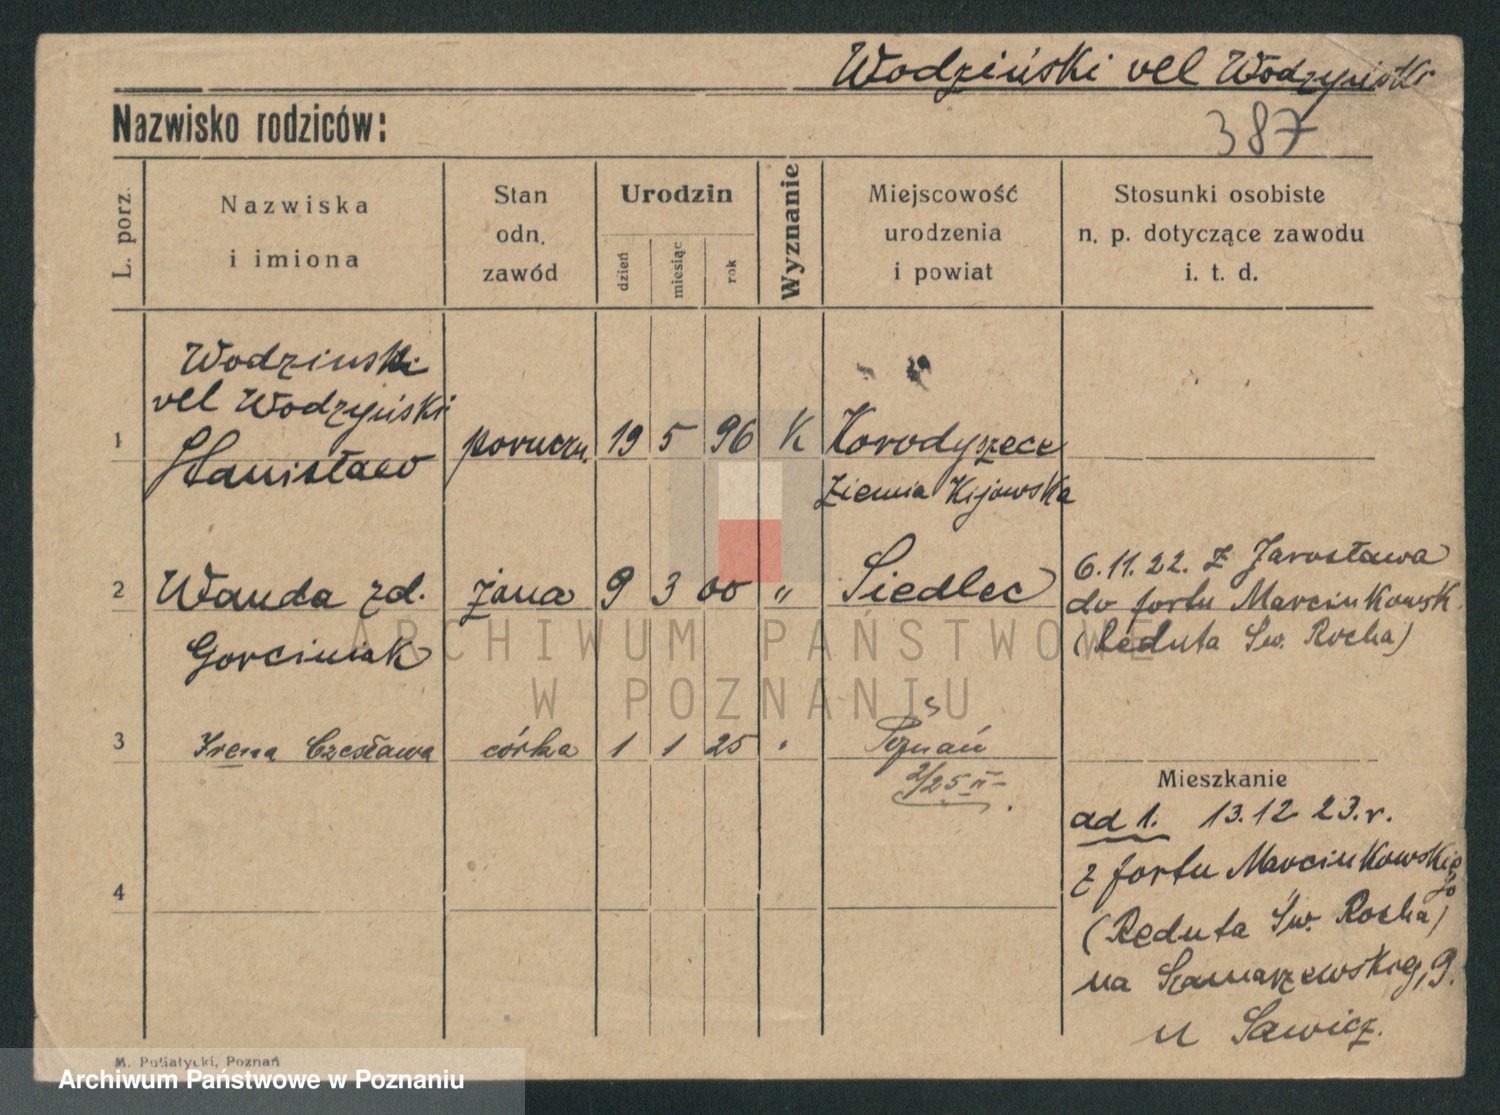 Wodziński vel Wodzyński
387
Nazwisko rodziców:
L. porz.
Nazwiska
i imiona
Stan
odn.
zawód
Urodzin
dzień
miesiąc
rok
Wyznanie
Miejscowość
urodzenia
i powiat
Stosunki osobiste
n. p. dotyczące zawodu
i. t. d.
Wodzinski
vel Wodzyński
1 Stanisław poruczn. 19 5 96 K Korodyszece
Ziemia Kijowska
2 Wanda zd. żona 9 3 00 " Siedlec
Gorciniak
6.11.22. z Jarosława
do fortu Marcinkowsk.
(Reduta Św. Rocha)
3 Irena Czesława córka 1 1 25 " Poznań
2/25 II
Mieszkanie
ad 1. 13.12 23.r.
z fortu Marcinkowskiego
(Reduta Św. Rocha)
na Szamarzewskieg, 9.
u Sawicz.
4
ARCHIWUM PAŃSTWOWE
W POZNANIU
M. Putiatycki, Poznań
Archiwum Państwowe w Poznaniu